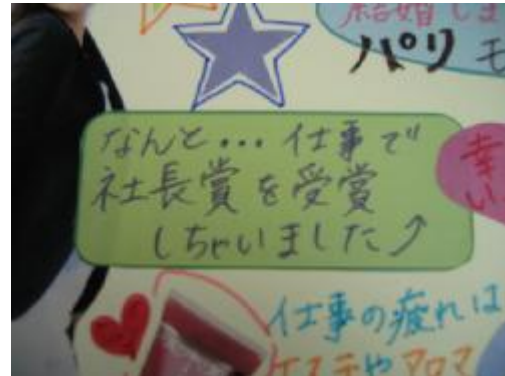 結婚しま
パリ モ
なんと・・・仕事で
社長賞を受賞
しちゃいました♪
幸
い
仕事の疲れは
エステやアロマ